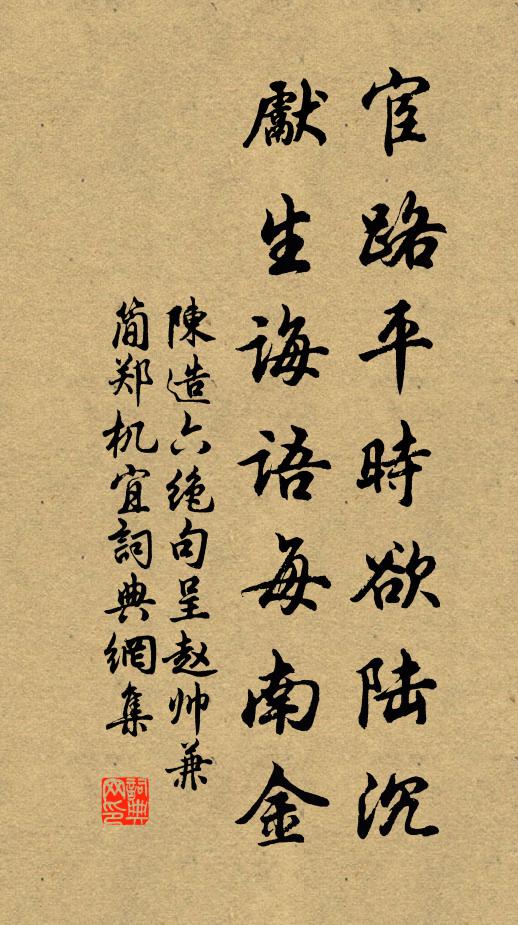 宦路平時欲陆沉
獻生诲语每南金
陳造六绝句呈赵帅兼
简郑机宜詞典網集
詞典
网印